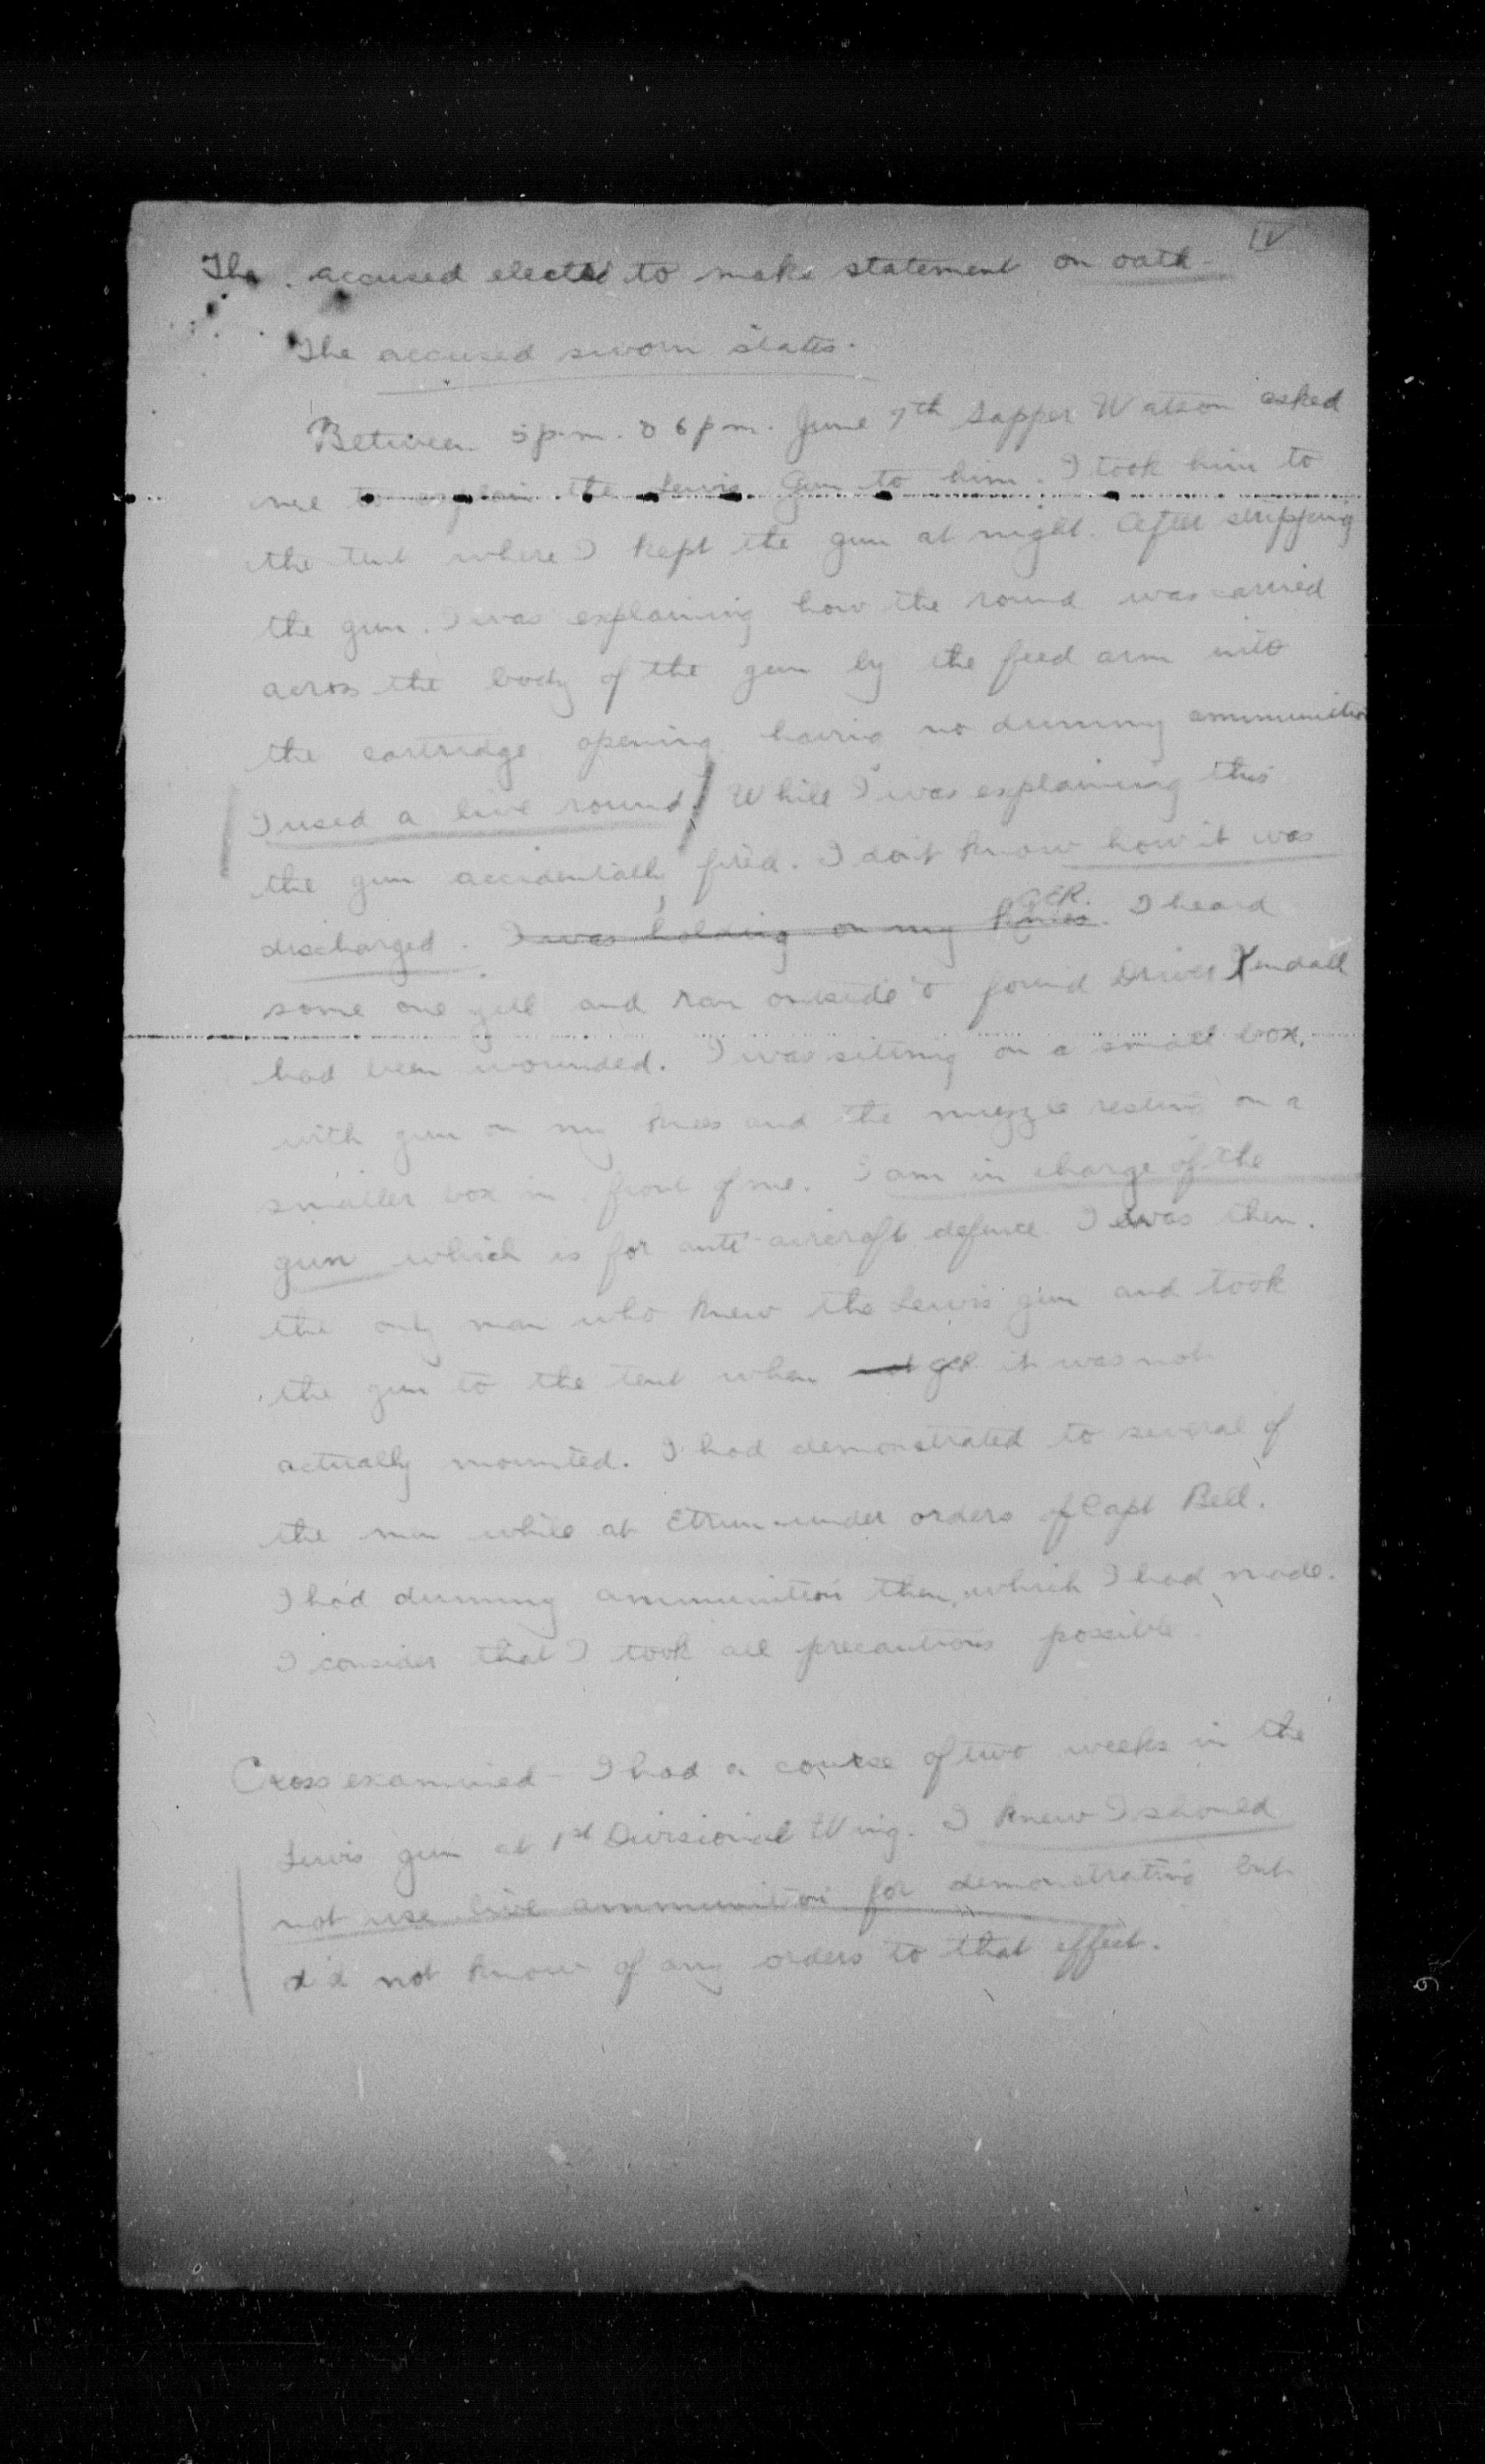 IV
The accused elected to make statement on oath -
The accused sworn states.
Between 5 p.m. & 6 p.m. June 7th Sapper Watson asked
me to explain the Lewis Gun to him. I took him to
the tent where I kept the gun at night. After stripping
the gun. I was explaining how the round was carried
across the body of the gun by the feed arm into
the cartridge opening having no dummy ammunition
I used a live round. While I was explaining this
the gun accidentally fired. I don't know how it was
discharged. I was holding on my knees. GER. I heard
some one yell and ran outside & found Driver Yendall
had been wounded. I was sitting on a small box,
with gun on my knees and the muzzle resting on a
smaller box in front of me. I am in charge of the
gun which is for anti-aircraft defence I was then.
the only man who knew the Lewis gun and took
the gun to the tent when it was not
actually mounted. I had demonstrated to several of
the men while at Etrun under orders of Capt Bell.
I had dummy ammunition then, which I had made.
I consider that I took all precautions possible.
Cross examined - I had a course of two weeks in the
Lewis gun at 1st Divisional Wing. I knew I should
not use live ammunition for demonstrating but
did not know of any orders to that effect.